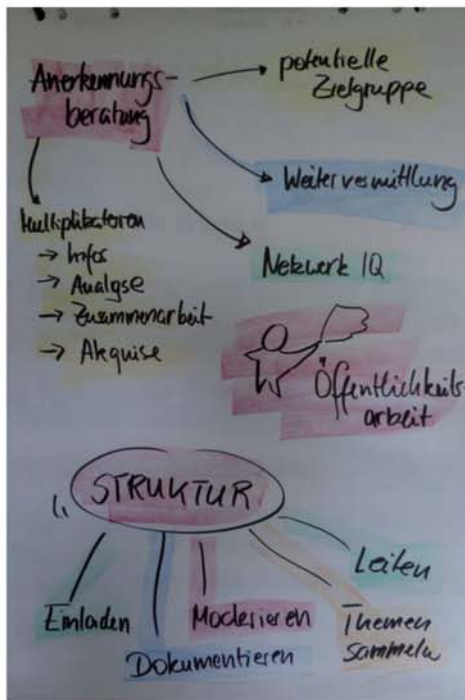 Anerkennungs-
beratung
potentielle
Zielgruppe
Weitervermittlung
Netzwerk IQ
Multiplikatoren
→ Infos
→ Analyse
→ Zusammenarbeit
→ Akquise
Öffentlichkeits
arbeit
STRUKTUR
Einladen
Dokumentieren
Moderieren
Themen
sammeln
Leiten